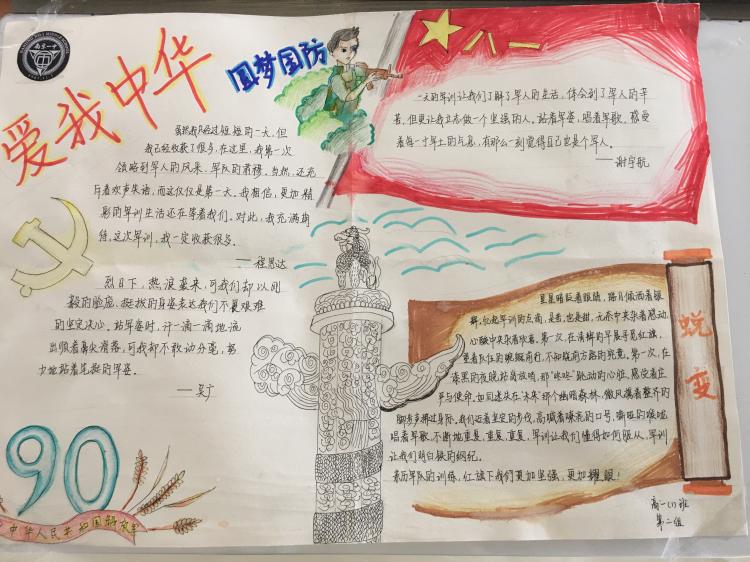 南京一中
爱我中华
圆梦国防
八一
虽然我只经过短短的一天,但
我已经收获了很多。在这里,我第一次
领略到军人的风采,军队的肃穆。当然,还充
斥着欢声笑语,而这仅仅是第一天。我相信,更加精
彩的军训生活还在等着我们。对此,我充满期
待,这次军训,我一定收获很多。
——程思达
烈日下,热浪袭来,可我们却以刚
毅的脸庞,挺拔的身姿表达我们不畏艰难
的坚定决心。站军姿时,汗一滴一滴地流
出顺着鼻尖滑落,可我却不敢动分毫,努
力地站着笔挺的军姿。
——吴广
一天的军训让我们了解了军人的生活,体会到了军人的辛
苦,但更让我立志做一个坚强的人。站着军姿,唱着军歌,感受
着每一寸军土的气息,有那么一刻觉得自己也是个军人。
——谢宇航
星星眨巴着眼睛,踏月倾洒着银
辉,忆起军训的点滴,是苦,也是甜,无奈中夹杂着感动,
心酸中夹杂着欣喜。第一次,在清晨的早晨寻觅红旗,
第一次,在
漆黑的夜晚站岗放哨,那“咚咚”跳动的心脏,感受着庄
严与使命,如同迷失在“未来”那个幽暗森林。微风携着整齐的
脚步声拂过身际。我们迈着坚定的步伐,高喊着嘹亮的口号,嘶哑的喉咙
唱着军歌,不断地重复,重复,重复,军训让我们懂得如何服从,军训
让我们明白铁的纲纪。
亲历军队的训练,红旗下我们更加坚强,更加耀眼!
蜕变
90
中华人民共和国解放军
高一(1)班
第二组